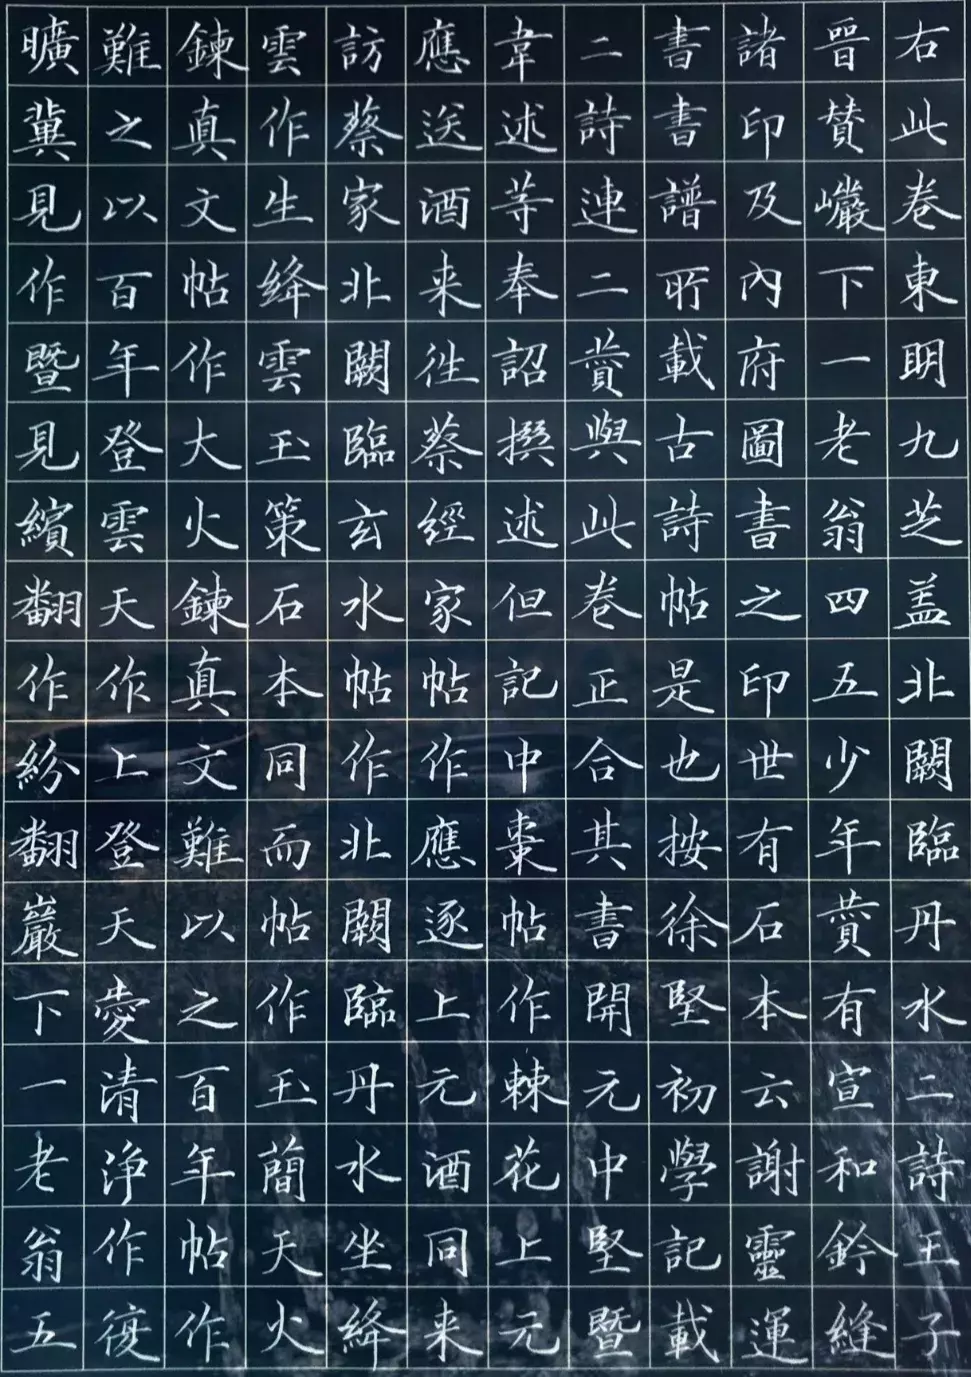 右此卷東明九芝盖北闕臨丹水二詩王子
晋賛巘下一老翁四五少年賛有宣和鈐縫
諸印及內府圖書之印世有石本云謝靈運
書書譜所載古詩帖是也按徐堅初學記載
二詩連二賛與此卷正合其書開元中堅暨
韋述等奉詔撰述但記中棗帖作棘花上元
應送酒来徃蔡經家帖作應逐上元酒同来
訪蔡家北闕臨玄水帖作北闕臨丹水坐絳
雲作生絳雲玉策石本同而帖作玉簡天火
鍊真文帖作大火鍊真文難以之百年帖作
難之以百年登雲天作上登天愛清淨作復
曠冀見作暨見繽翻作紛翻巖下一老翁五